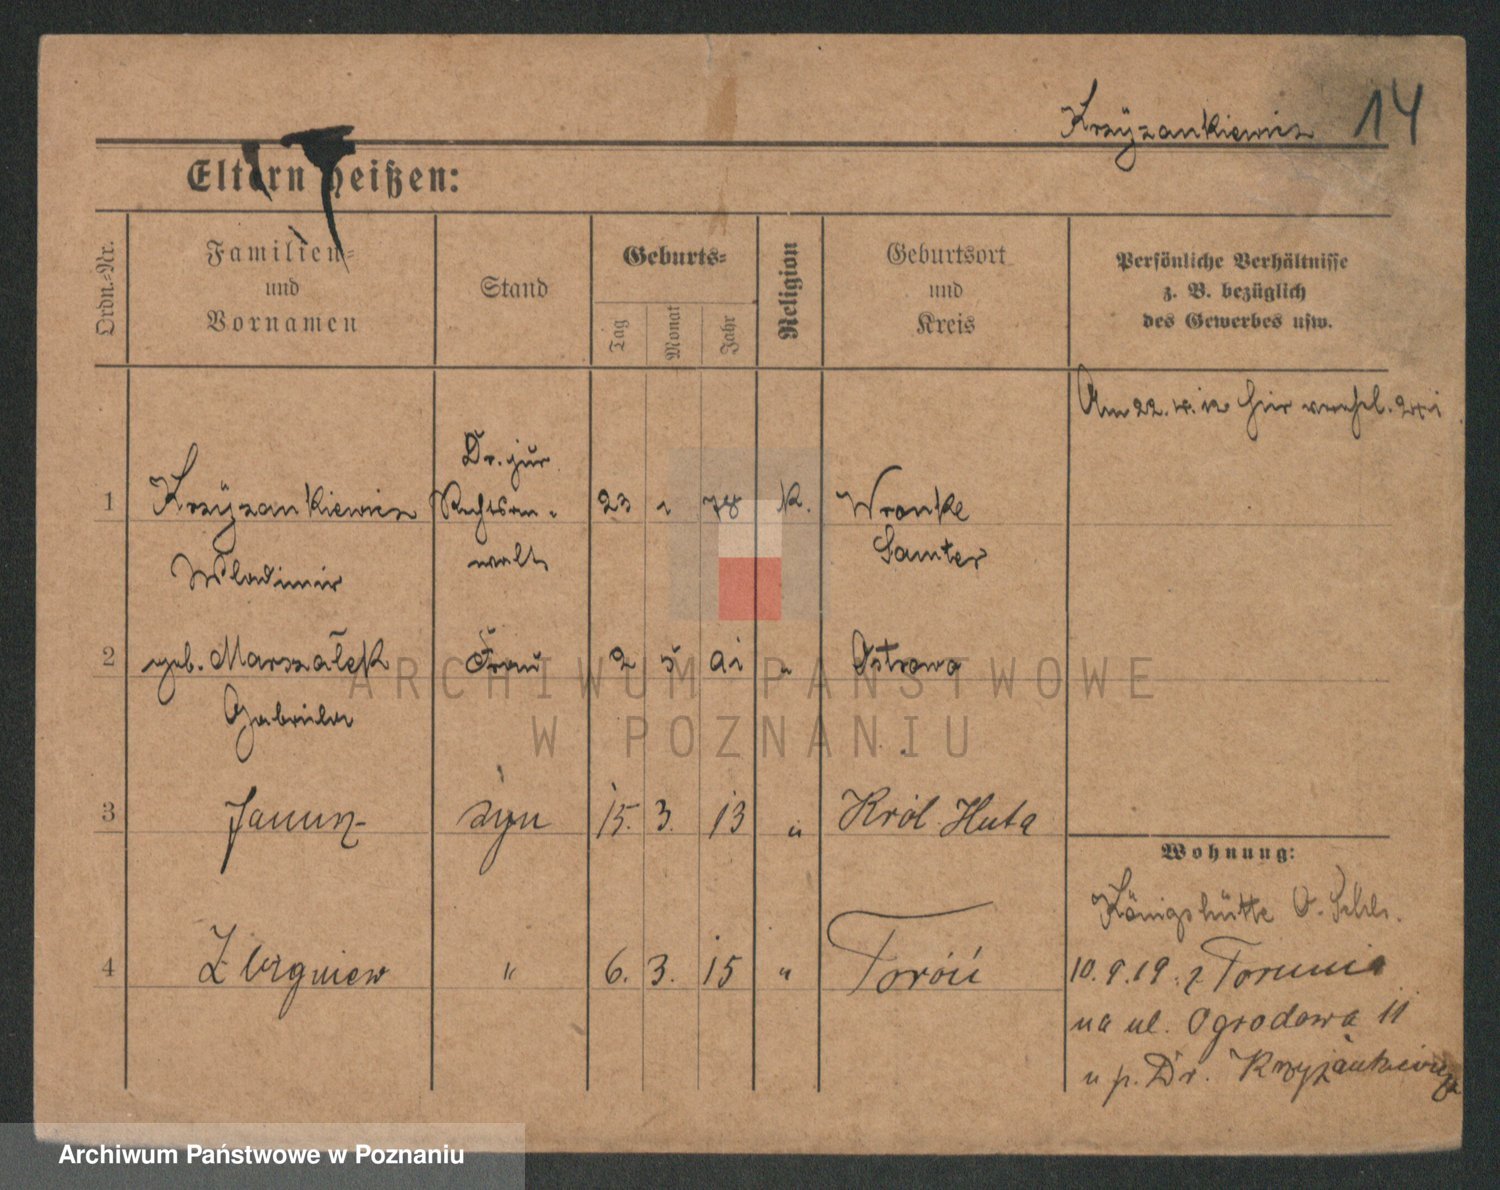 Krzÿzankiewicz 14
Eltern heißen:
Ordn.=Nr.
Familien=
und
Vornamen
Stand
Geburts=
Tag
Monat
Jahr
Religion
Geburtsort
und
Kreis
Persönliche Verhältnisse
z. B. bezüglich
des Gewerbes usw.
Am 22. 4. 12 hier verehel.
Dr. jur
1 Krzÿzankiewicz Rechtsan- 23 1 78 k. Wronke
Wladimir walt Samter
2 geb. Marszałek Frau 2 5 91 " Ostrowo
Gabriela
3 Janusz syn 15. 3. 13 " Król. Huta
4 Zbigniew " 6. 3. 15 " Toróń
Wohnung:
Königshütte O. Schles.
10.9.19. z Torunia
na ul. Ogrodowa 11
u p. Dr. Krzyżankiewicza
ARCHIWUM PAŃSTWOWE
W POZNANIU
Archiwum Państwowe w Poznaniu